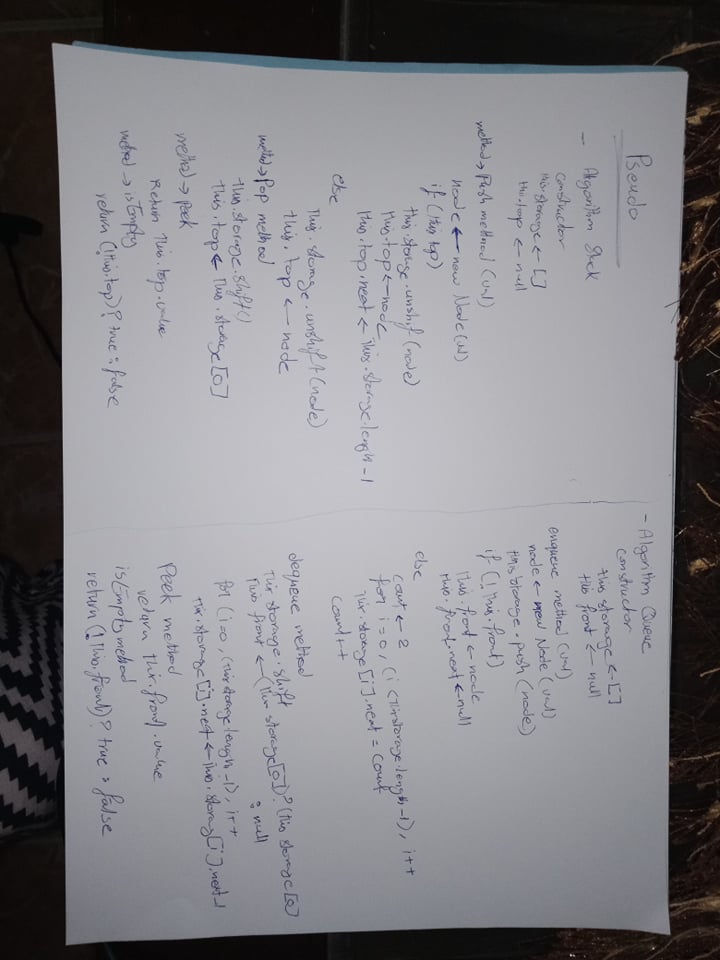 Pseudo
- Algorithm Stack
constructor
this.storage ← []
this.top ← null
method → push method (val)
node ← new Node(val)
if (!this.top)
this.storage.unshif(node)
this.top ← node
this.top.next ← this.storage.length - 1
else
this.storage.unshift(node)
this.top ← node
method → pop method
this.storage.shift()
this.top ← this.storage[0]
method → peek
return this.top.value
method → isEmpty
return (!this.top)? true : false
- Algorithm Queue
constructor
this storage ← []
this front ← null
enqueue method (val)
node ← new Node (val)
this storage.push (node)
if (!this.front)
this.front ← node
this.front.next ← null
else
count ← 2
for i = 0, (i < this.storage.length - 1), i++
this.storage[i].next = count
count++
dequeue method
this storage.shift
this.front ← (this storage[0])? (this storage[0]
: null
for (i=0, (this storage length -1), i++
this.storage[i].next ← this.storag[i].next -1
Peek method
return this.front.value
isEmpty method
return (!this.front)? true : false